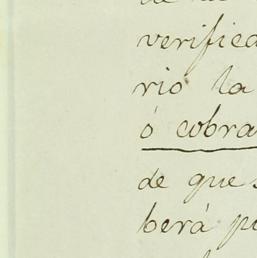 verifica
rio la
ó cobra
de que s
berá p